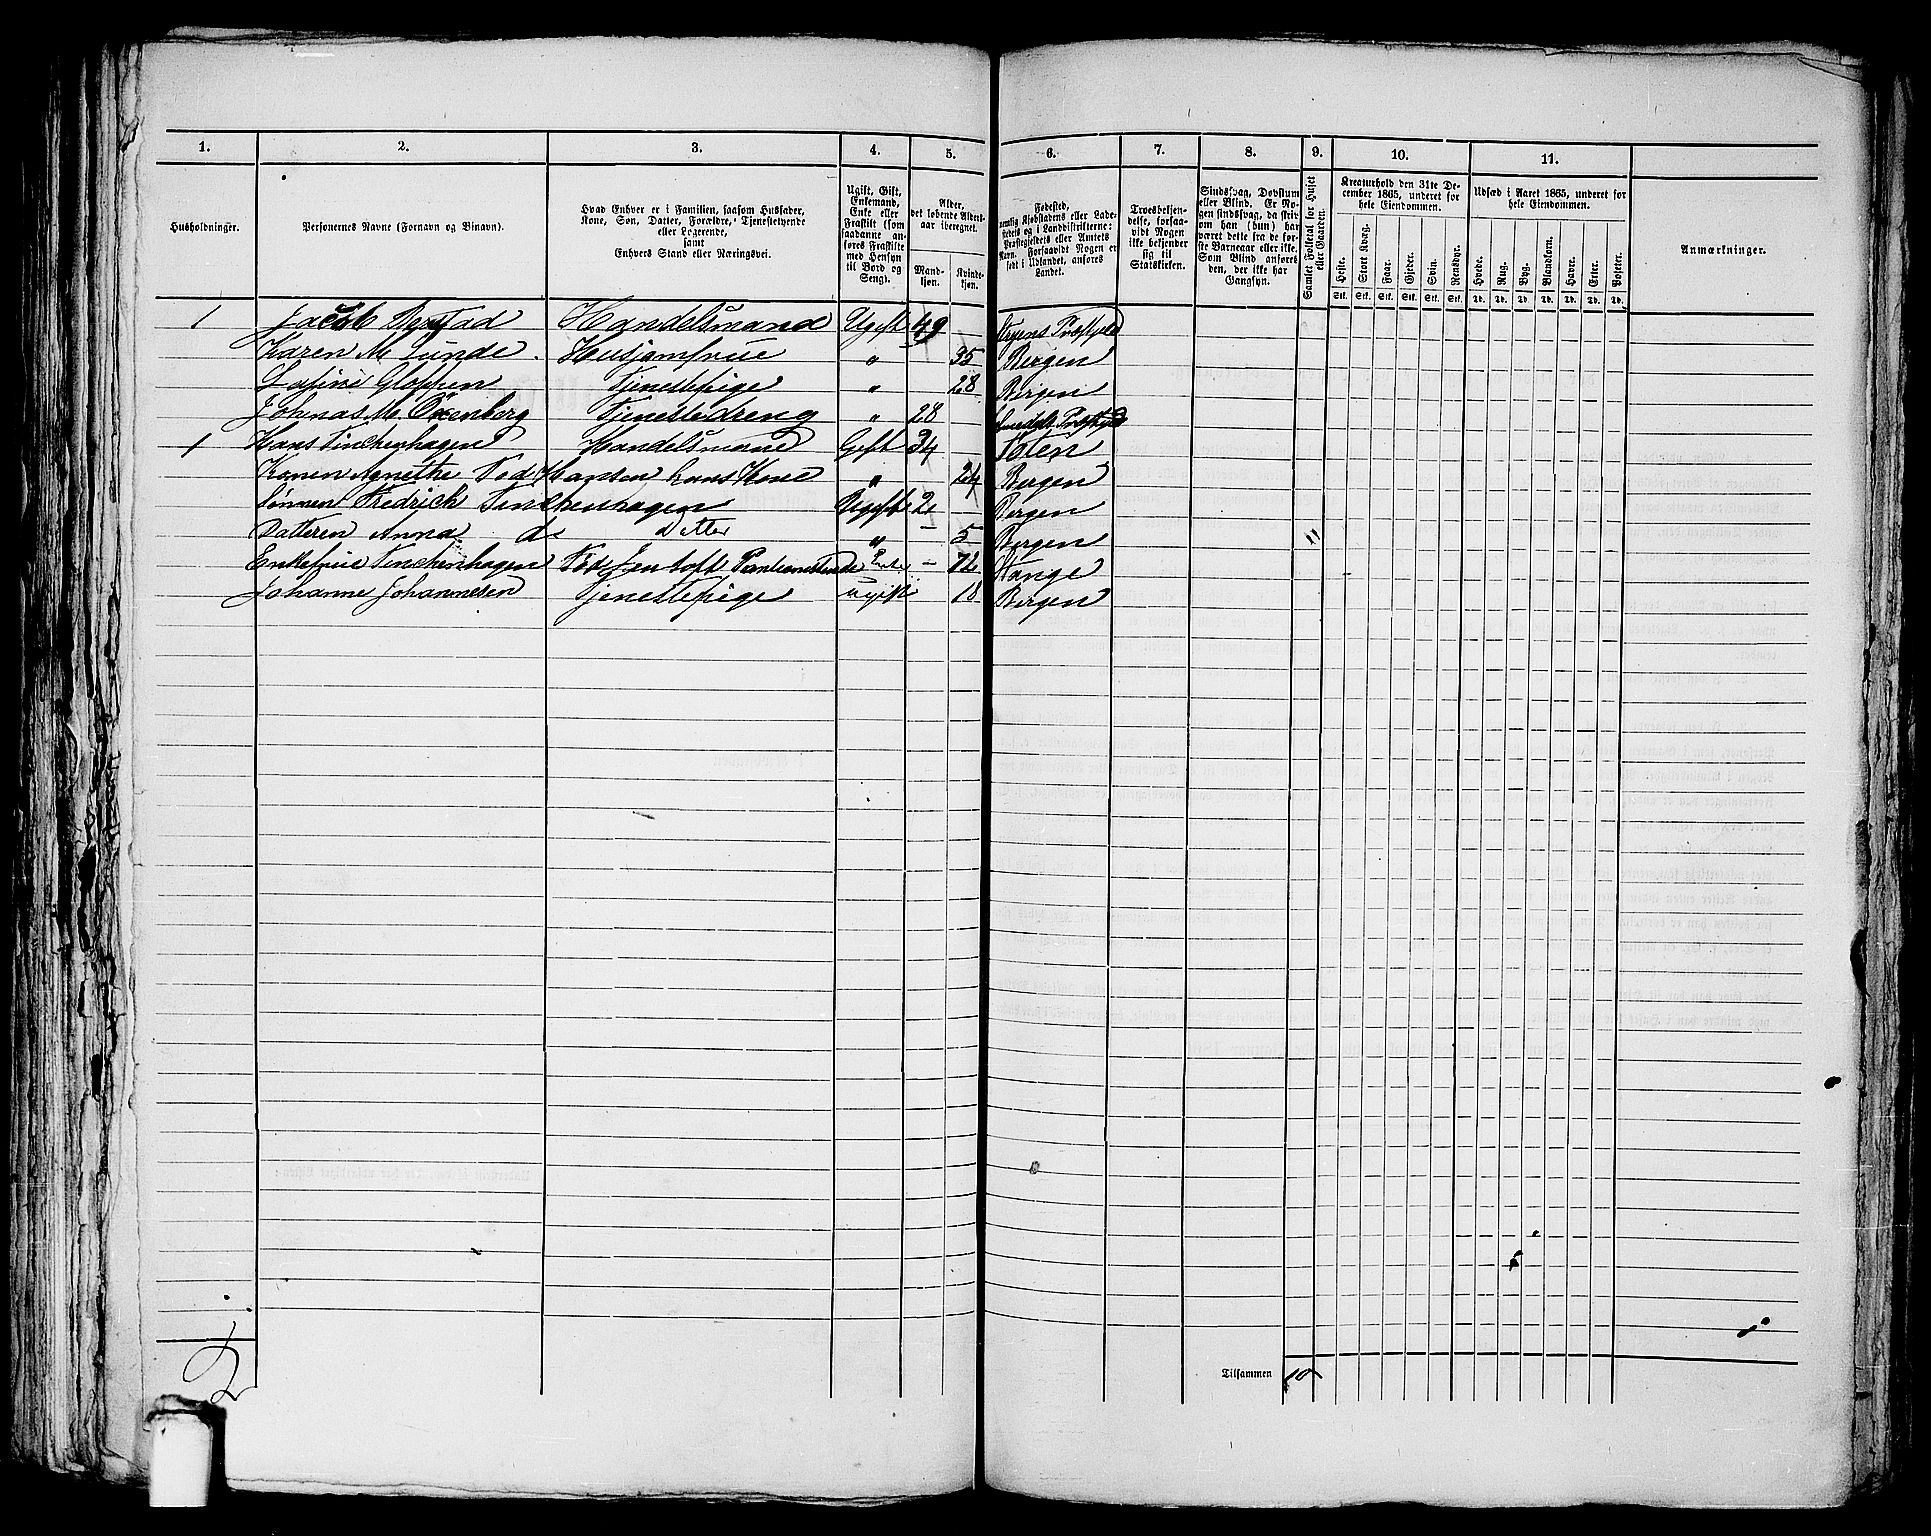 1. 2. 3. 4. 5. 6. 7. 8. 9. 10. 11.
Husholdninger.
Personernes Navne (Fornavn og Binavn).
Hvad Enhver er i Familien, saasom Husfader,
Kone, Søn, Datter, Forældre, Tjenestetyende
eller Logerende,
samt
Enhvers Stand eller Næringsvei.
Ugift, Gift,
Enkemand,
Enke eller
Fraskilt (som
saadanne an-
føres Fraskilte
med Hensyn
til Bord og
Seng).
Alder,
det løbende Alders-
aar iberegnet.
Mand-
kjøn.
Kvinde-
kjøn.
Fødested,
nemlig Kjøbstadens eller Lade-
stedets og i Landdistrikterne:
Præstegjeldets eller Amtets
Navn. Forsaavidt Nogen er
født i Udlandet, anføres
Landet.
Troesbekjen-
delse, forsaa-
vidt Nogen
ikke bekjender
sig til
Statskirken.
Sindssvag, Døvstum
eller Blind. Er No-
gen sindssvag, da skriv
om han (hun) har
været dette fra de før-
ste Barneaar eller ikke.
Som Blind anføres
den, der ikke har
Gangsyn.
Samlet Folketal for Huset
eller Gaarden.
Kreaturhold den 31te De-
cember 1865, underet for
hele Eiendommen.
Heste. Stort Kvæg. Faar. Gjeder. Svin. Rensdyr.
Stk. Stk. Stk. Stk. Stk. Stk.
Udsæd i Aaret 1865, underet for
hele Eiendommen.
Hvede. Rug. Byg. Blandkorn. Havre. Erter. Poteter.
Td. Td. Td. Td. Td. Td. Td.
Anmærkninger.
1 Jacob Handelsmand Ugift 49 Præstgjeld
Karen M Lunde Husjomfrue " 35 Bergen
Gloppen Tjenestepige " 28 Bergen
Johnas M. Tjenestedreng " 28
1 Hans Finchenhagen Handelsmand Gift 34 Toten
Konen Agnethe Fod Hansen hans Kone " 24 Bergen
Sønnen Fredrich Finchenhagen Ugift 2 Bergen
Datteren Anna do Datter " 5 Bergen
Enkefrue Finchenhagen Enke 72 Stange
Johanne Johannesen Tjenestepige ugift 18 Bergen
2
Tilsammen 10